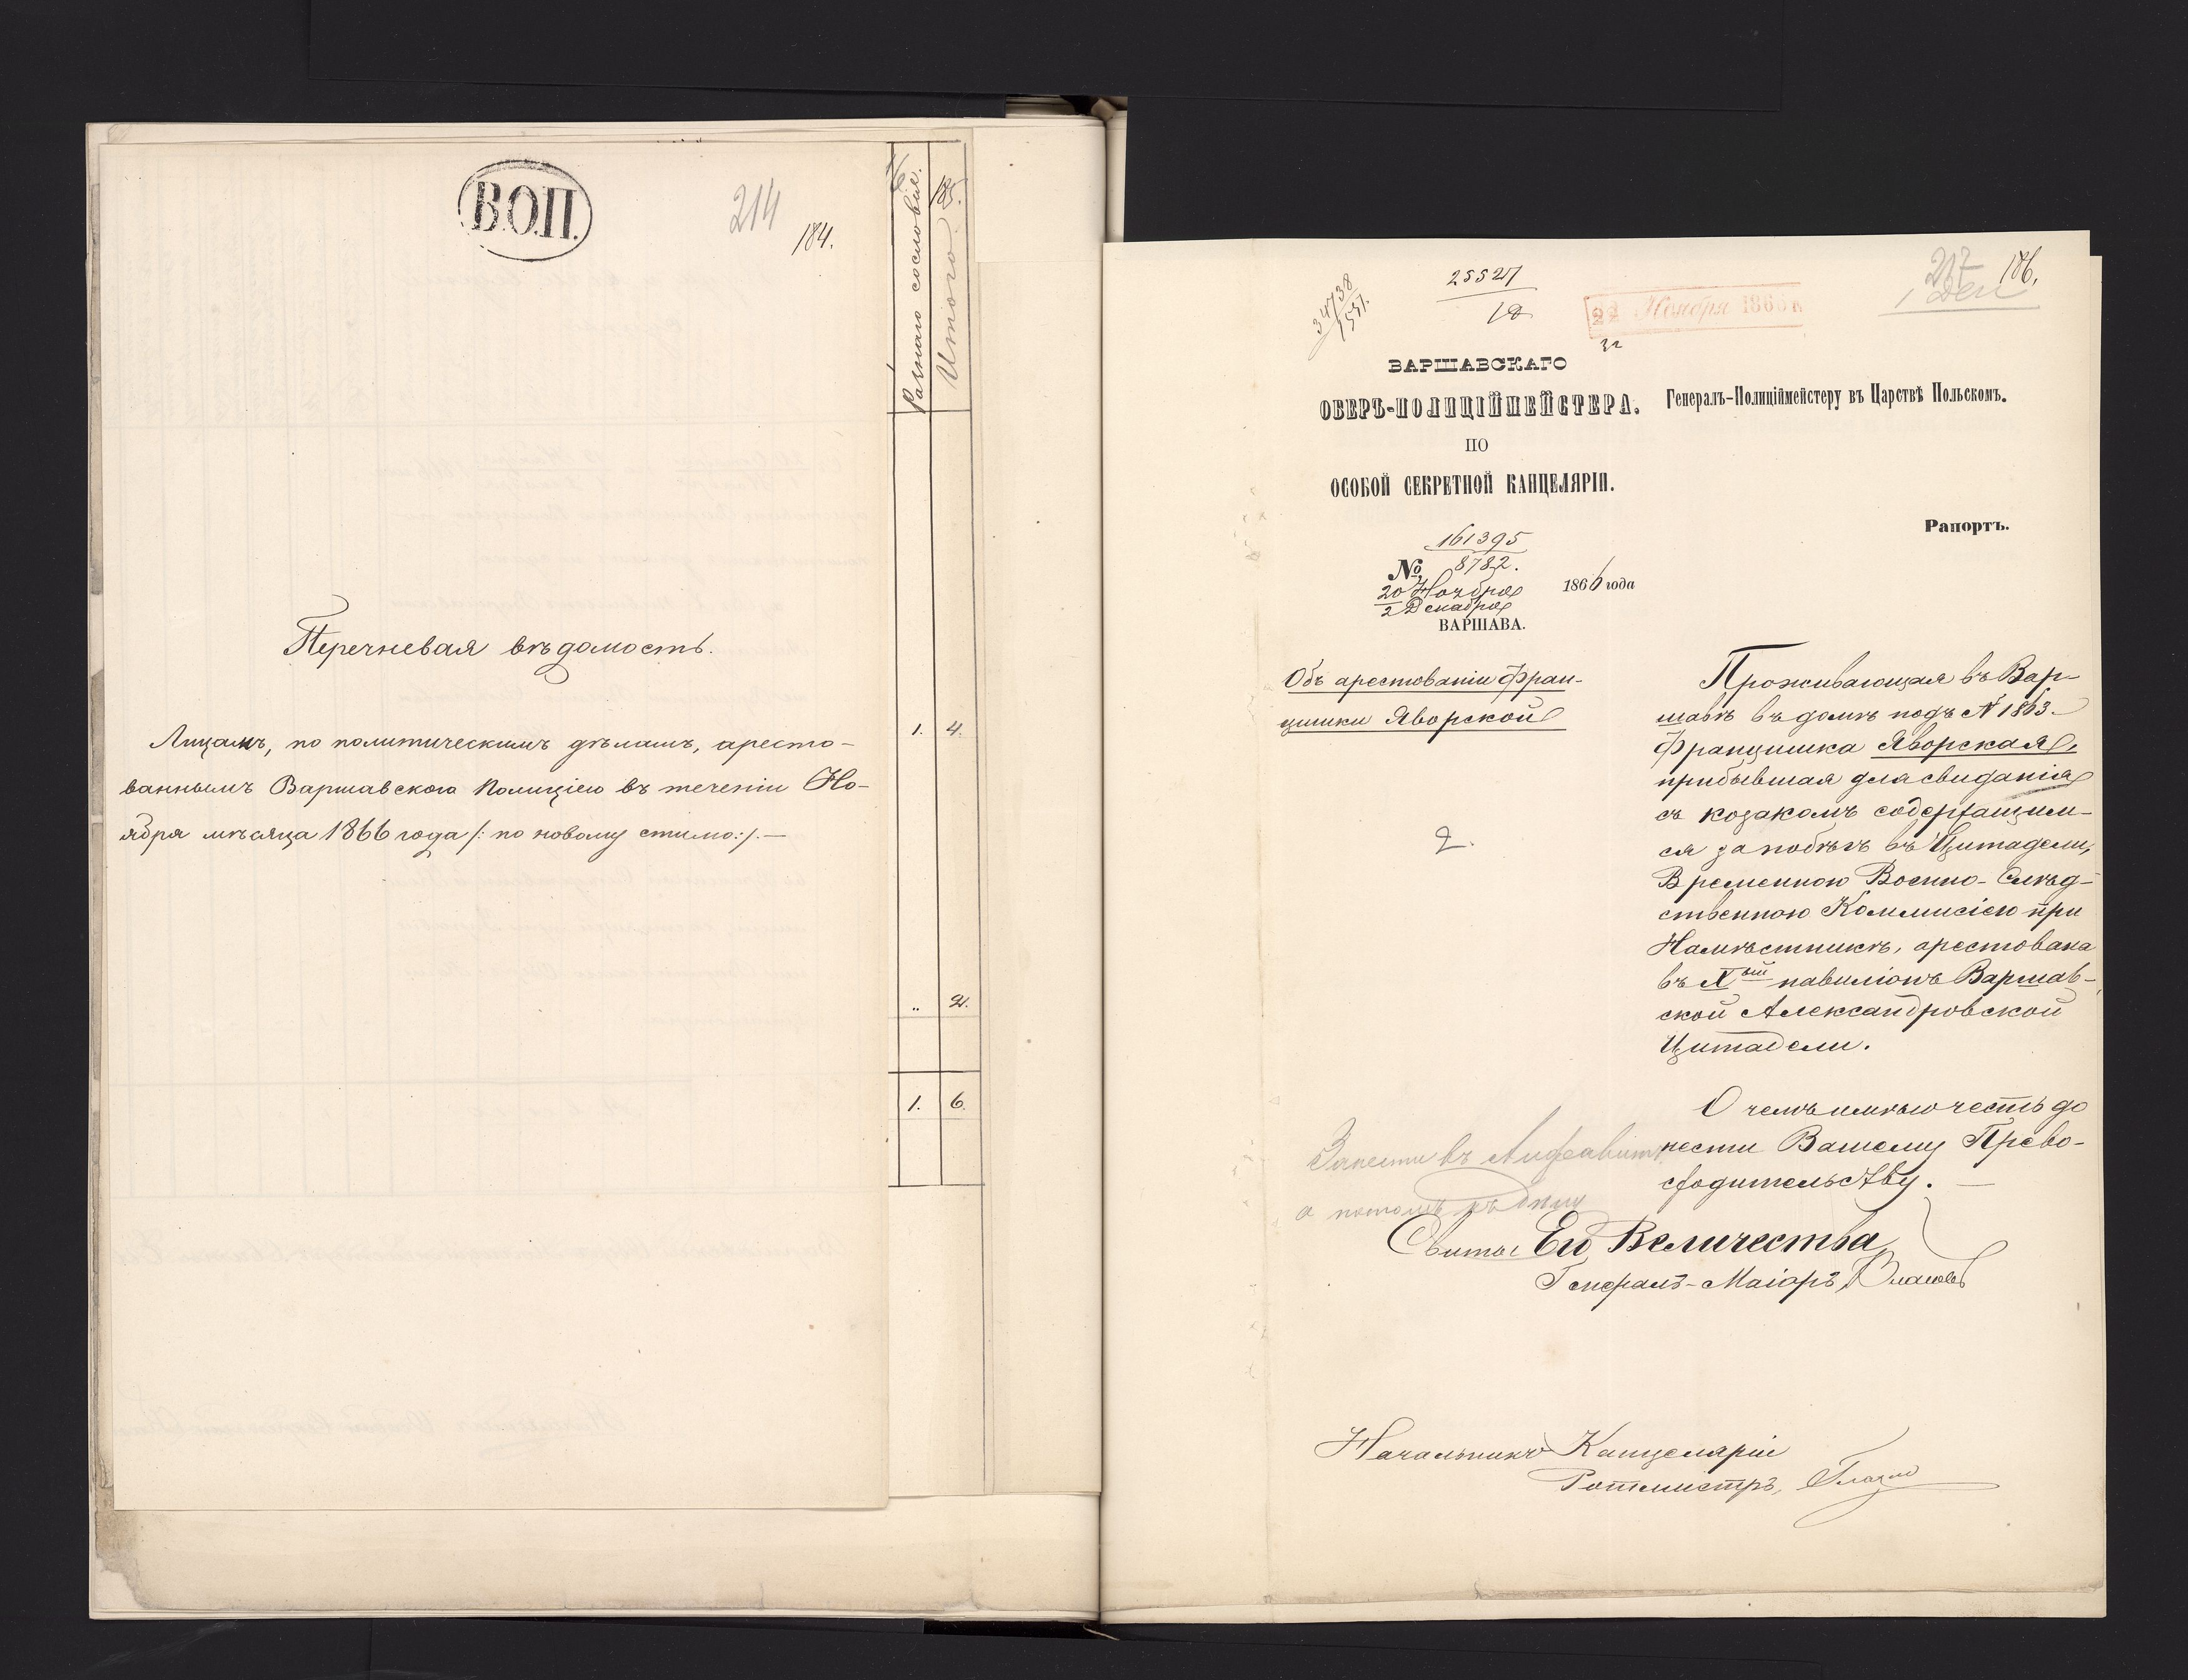 В.О.П.
214
184.
Перечневая вѣдомость.
Лицамъ, по политическимъ дѣламъ, аресто-
ваннымъ Варшавскою Полиціею въ теченіи Но-
ября мѣсяца 1866 года /: по новому стилю:/. —
185.
Разнаго сословія.
Итого.
1. 4.
„ 2.
1. 6.
25527
18
22 Ноября 1866
217
186.
ВАРШАВСКАГО
ОБЕРЪ-ПОЛИЦІЙМЕЙСТЕРА.
ПО
ОСОБОЙ СЕКРЕТНОЙ КАНЦЕЛЯРІИ.
161395
№ 8782.
20 Ноября
2 Декабря
1866 года
ВАРШАВА.
Генералъ-Полиціймейстеру въ Царствѣ Польскомъ.
Рапортъ.
Объ арестованіи Фран-
цишки Яворской
2.
Проживающая въ Вар-
шавѣ въ домѣ подъ № 1863
Францишка Яворская,
прибывшая для свиданія
съ козакомъ содержащим-
ся за побѣгъ въ Цитадели,
Временною Военно-Слѣд-
ственною Коммисіею при
Намѣстникѣ, арестована
въ Xый павиліонъ Варшав-
ской Александровской
Цитадели.
О чемъ имѣю честь до
нести Вашему Прево-
сходительству. —
Занести въ Алфавитъ
а потомъ къ дѣлу
Свиты Его Величества
Генералъ-Маіоръ Власовъ
Начальникъ Канцеляріи
Ротмистръ,